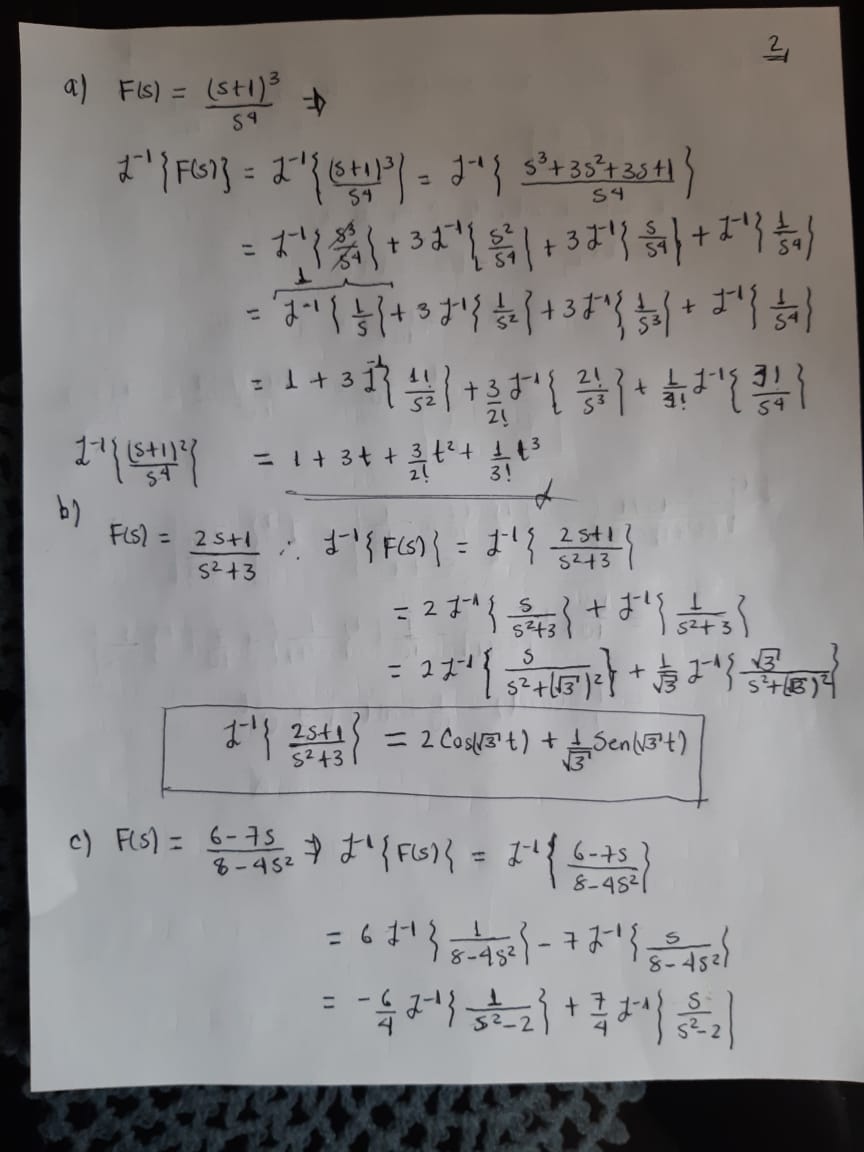 2
a) F(s) = (s+1)³/s⁴ ⇒
ℒ⁻¹{F(s)} = ℒ⁻¹{(s+1)³/s⁴} = ℒ⁻¹{(s³+3s²+3s+1)/s⁴}
= ℒ⁻¹{s³/s⁴} + 3ℒ⁻¹{s²/s⁴} + 3ℒ⁻¹{s/s⁴} + ℒ⁻¹{1/s⁴}
1
= ℒ⁻¹{1/s} + 3ℒ⁻¹{1/s²} + 3ℒ⁻¹{1/s³} + ℒ⁻¹{1/s⁴}
= 1 + 3ℒ⁻¹{1!/s²} + 3/2! ℒ⁻¹{2!/s³} + 1/3! ℒ⁻¹{3!/s⁴}
ℒ⁻¹{(s+1)²/s⁴} = 1 + 3t + 3/2! t² + 1/3! t³
b)
F(s) = (2s+1)/(s²+3) ∴ ℒ⁻¹{F(s)} = ℒ⁻¹{(2s+1)/(s²+3)}
= 2ℒ⁻¹{s/(s²+3)} + ℒ⁻¹{1/(s²+3)}
= 2ℒ⁻¹{s/(s²+(√3)²)} + 1/√3 ℒ⁻¹{√3/(s²+(√3)²)}
ℒ⁻¹{(2s+1)/(s²+3)} = 2Cos(√3 t) + 1/√3 Sen(√3 t)
c) F(s) = (6-7s)/(8-4s²) ⇒ ℒ⁻¹{F(s)} = ℒ⁻¹{(6-7s)/(8-4s²)}
= 6ℒ⁻¹{1/(8-4s²)} - 7ℒ⁻¹{s/(8-4s²)}
= -6/4 ℒ⁻¹{1/(s²-2)} + 7/4 ℒ⁻¹{s/(s²-2)}